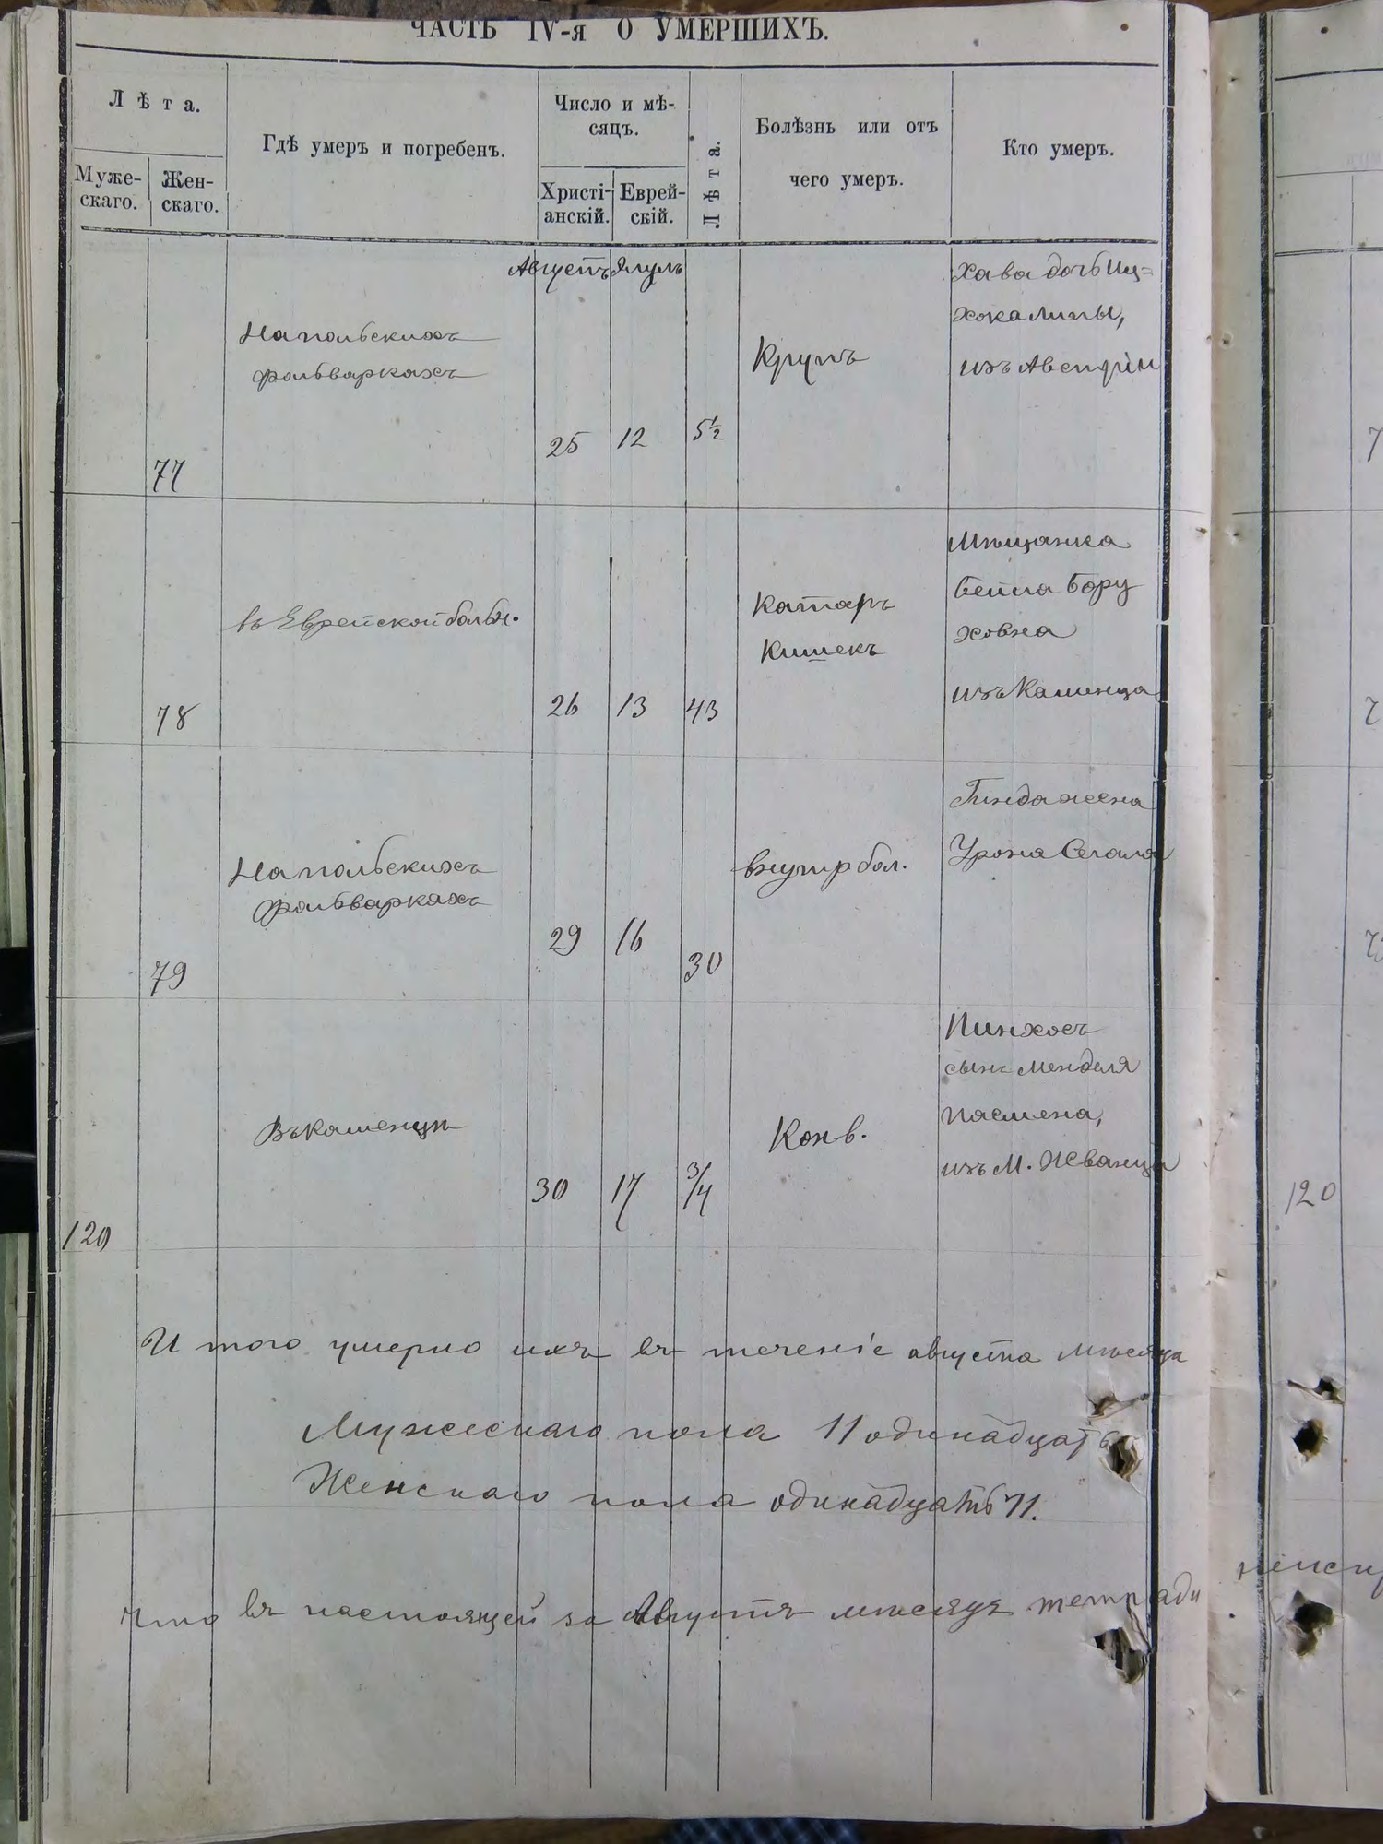 ЧАСТЬ IV-я О УМЕРШИХЪ.
Лѣта.
Мужескаго.
Женскаго.
Гдѣ умеръ и погребенъ.
Число и мѣ-
сяцъ.
Христі-
анскій.
Еврей-
скій.
Лѣта.
Болѣзнь или отъ
чего умеръ.
Кто умеръ.
Августъ Элулъ
77
На польскихъ
фольваркахъ
25
12
5½
Крупъ
Хава дочь Иц=
хока Липы,
изъ Австріи
78
въ Еврейской больн.
26
13
43
Катаръ
Кишекъ
Мѣщанка
Бейла Бору
ховна
изъ Каменца
79
На польскихъ
фольваркахъ
29
16
30
внутр бол.
жена
Сегала
120
Въ Каменцѣ
30
17
3/4
Конв.
Пинхосъ
сынъ Менделя
изъ М. Жванца
120
И того умерло ихъ въ теченіе августа мѣсяца
Мужескаго пола 11 одинадцать
Женскаго пола одинадцать 11.
Что въ настоящей за Августъ мѣсяцъ тетради